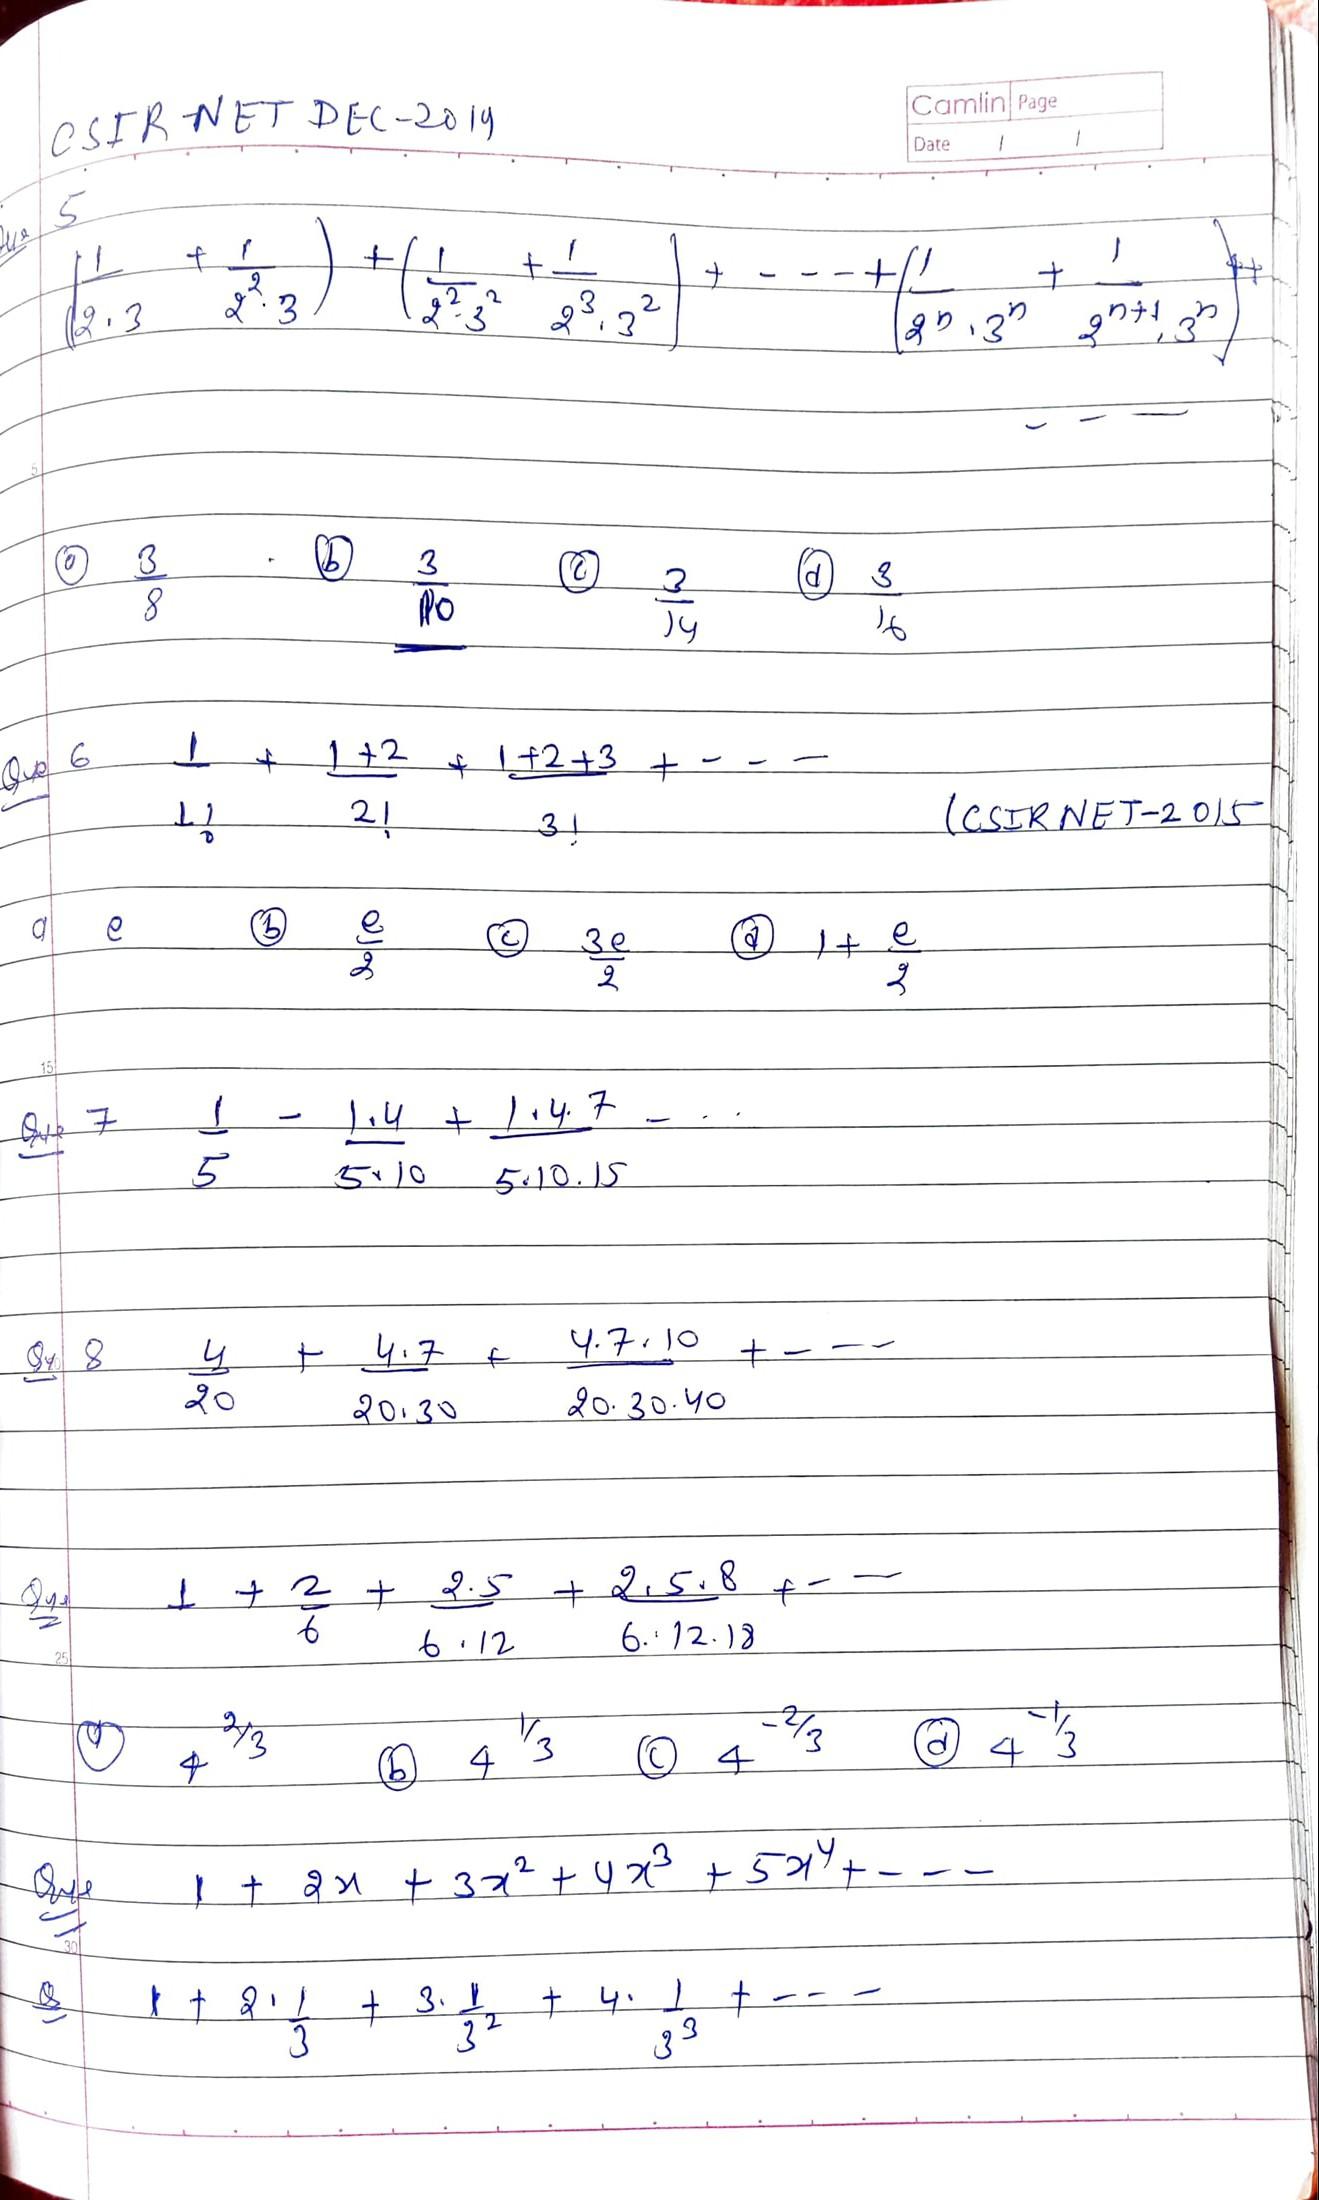 CSIR NET DEC-2019
Camlin Page
Date / /
Que 5
(1/2.3 + 1/2².3) + (1/2².3² + 1/2³.3²) + - - - + (1/2ⁿ.3ⁿ + 1/2ⁿ⁺¹.3ⁿ) +
- - -
5
ⓐ 3/8 ⓑ 3/10 ⓒ 3/14 ⓓ 3/16
Que 6 1/1! + 1+2/2! + 1+2+3/3! + - - -
(CSIR NET-2015
a e ⓑ e/2 ⓒ 3e/2 ⓓ 1+ e/2
15
Que 7 1/5 - 1.4/5.10 + 1.4.7/5.10.15 - ...
Qu 8 4/20 + 4.7/20.30 + 4.7.10/20.30.40 + - - -
Que 1 + 2/6 + 2.5/6.12 + 2.5.8/6.12.18 + - -
25
ⓐ 4^2/3 ⓑ 4^1/3 ⓒ 4^-2/3 ⓓ 4^-1/3
Que 1 + 2x + 3x² + 4x³ + 5x⁴ + - - -
30
Q 1 + 2.1/3 + 3.1/3² + 4.1/3³ + - - -